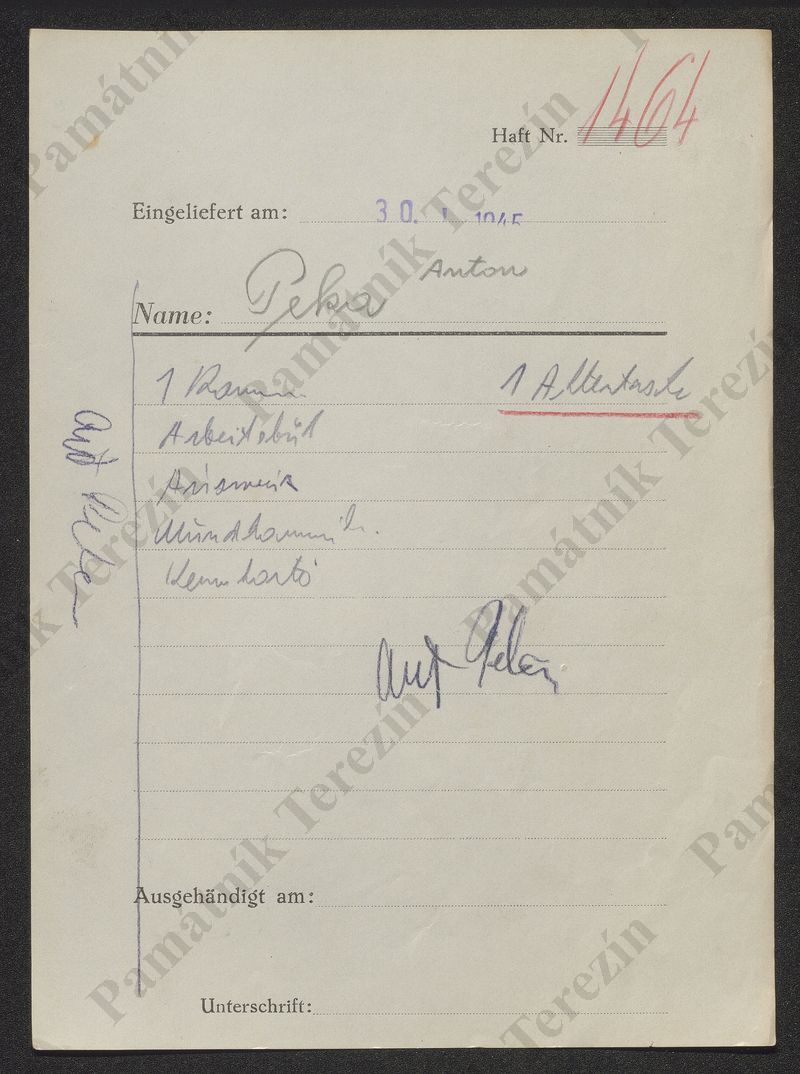 Haft Nr. 1464
Eingeliefert am: 30. 1945
Name: Peka Anton
1 Kamm 1 Aktentasche
Arbeitsbuch
Ausweis
Kennkarte
Ant
Ant
Ausgehändigt am:
Unterschrift:
Památník Terezín